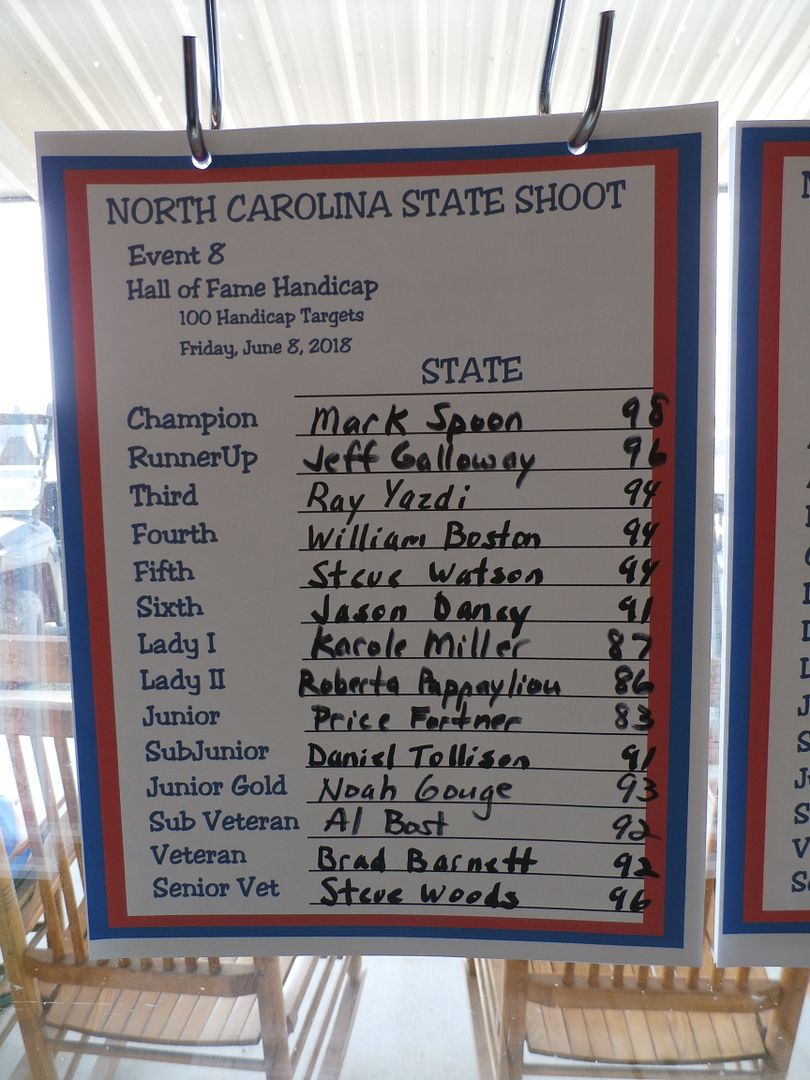 NORTH CAROLINA STATE SHOOT
Event 8
Hall of Fame Handicap
100 Handicap Targets
Friday, June 8, 2018
STATE
Champion Mark Spoon 98
RunnerUp Jeff Galloway 96
Third Ray Yazdi 94
Fourth William Boston 94
Fifth Steve Watson 94
Sixth Jason Dancy 91
Lady I Karole Miller 87
Lady II Roberta 86
Junior Price Fortner 83
SubJunior Daniel Tollison 91
Junior Gold Noah Gouge 93
Sub Veteran Al Bost 92
Veteran Brad Barnett 92
Senior Vet Steve Woods 96